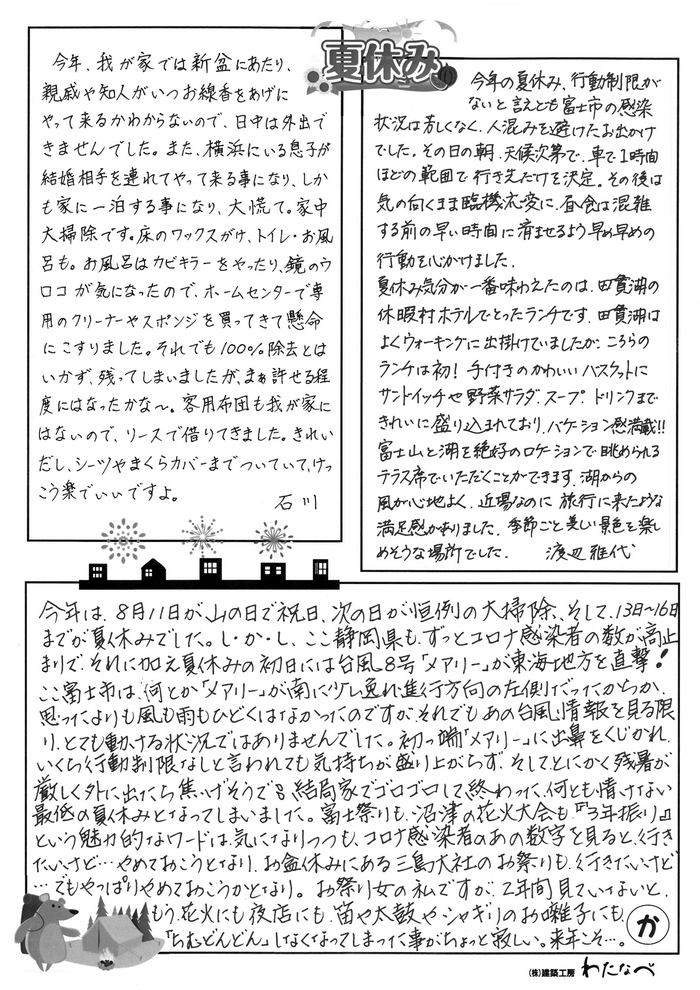 夏休み
今年、我が家では新盆にあたり、
親戚や知人がいつお線香をあげに
やって来るかわからないので、日中は外出で
きませんでした。また、横浜にいる息子が
結婚相手を連れてやって来る事になり、しか
も家に一泊する事になり、大慌て。家中
大掃除です。床のワックスがけ、トイレ・お風
呂も。お風呂はカビキラーをやったり、鏡のウ
ロコが気になったので、ホームセンターで専
用のクリーナーやスポンジを買ってきて懸命
にこすりました。それでも100%除去とは
いかず、残ってしまいましたが、まぁ許せる程
度にはなったかな〜。客用布団も我が家に
はないので、リースで借りてきました。きれい
だし、シーツやまくらカバーまでついていて、けっ
こう楽でいいですよ。 石川
今年の夏休み、行動制限が
ないと言えども富士市の感染
状況は芳しくなく、人混みを避けたお出かけ
でした。その日の朝、天候次第で、車で1時間
ほどの範囲で行き先だけを決定。その後は
気の向くまま臨機応変に、昼食は混雑
する前の早い時間に済ませるよう早め早めの
行動を心がけました。
夏休み気分が一番味わえたのは、田貫湖の
休暇村ホテルでとったランチです。田貫湖は
よくウォーキングに出掛けていましたが、こちらの
ランチは初！手付きのかわいいバスケットに
サンドイッチや野菜サラダ、スープ、ドリンクまで
きれいに盛り込まれており、バケーション感満載!!
富士山と湖を絶好のロケーションで眺められる
テラス席でいただくことができます。湖からの
風が心地よく、近場なのに旅行に来たような
満足感がありました。季節ごと美しい景色を楽し
めそうな場所でした。 渡辺雅代
今年は、8月11日が山の日で祝日、次の日が恒例の大掃除、そして、13日〜16日
までが夏休みでした。し・か・し、ここ静岡県も、ずっとコロナ感染者の数が高止
まりで、それに加え夏休みの初日には台風8号「メアリー」が東海地方を直撃！
ここ富士市は、何とか「メアリー」が南にズレ免れ進行方向の左側だったからか、
思ったよりも風も雨もひどくはなかったのですが、それでもあの台風情報を見る限
り、とても動ける状況ではありませんでした。初っ端「メアリー」に出鼻をくじかれ、
いくら行動制限なしと言われても気持ちが盛り上がらず、そしてとにかく残暑が
厳しく外に出たら焦げそうで、結局家でゴロゴロして終わった、何とも情けない
最低の夏休みとなってしまいました。富士祭りも、沼津の花火大会も『3年振り』
という魅力的なワードは、気になりつつも、コロナ感染者のあの数字を見ると、行き
たいけど…やめておこうとなり、お盆休みにある三島大社のお祭りも、行きたいけど
…でもやっぱりやめておこうかとなり。お祭り女の私ですが、2年間見ていないと、
もう、花火にも夜店にも、笛や太鼓やシャギリのお囃子にも、
「ちむどんどん」しなくなってしまった事がちょっと寂しい。来年こそ…。 か
(株)建築工房 わたなべ